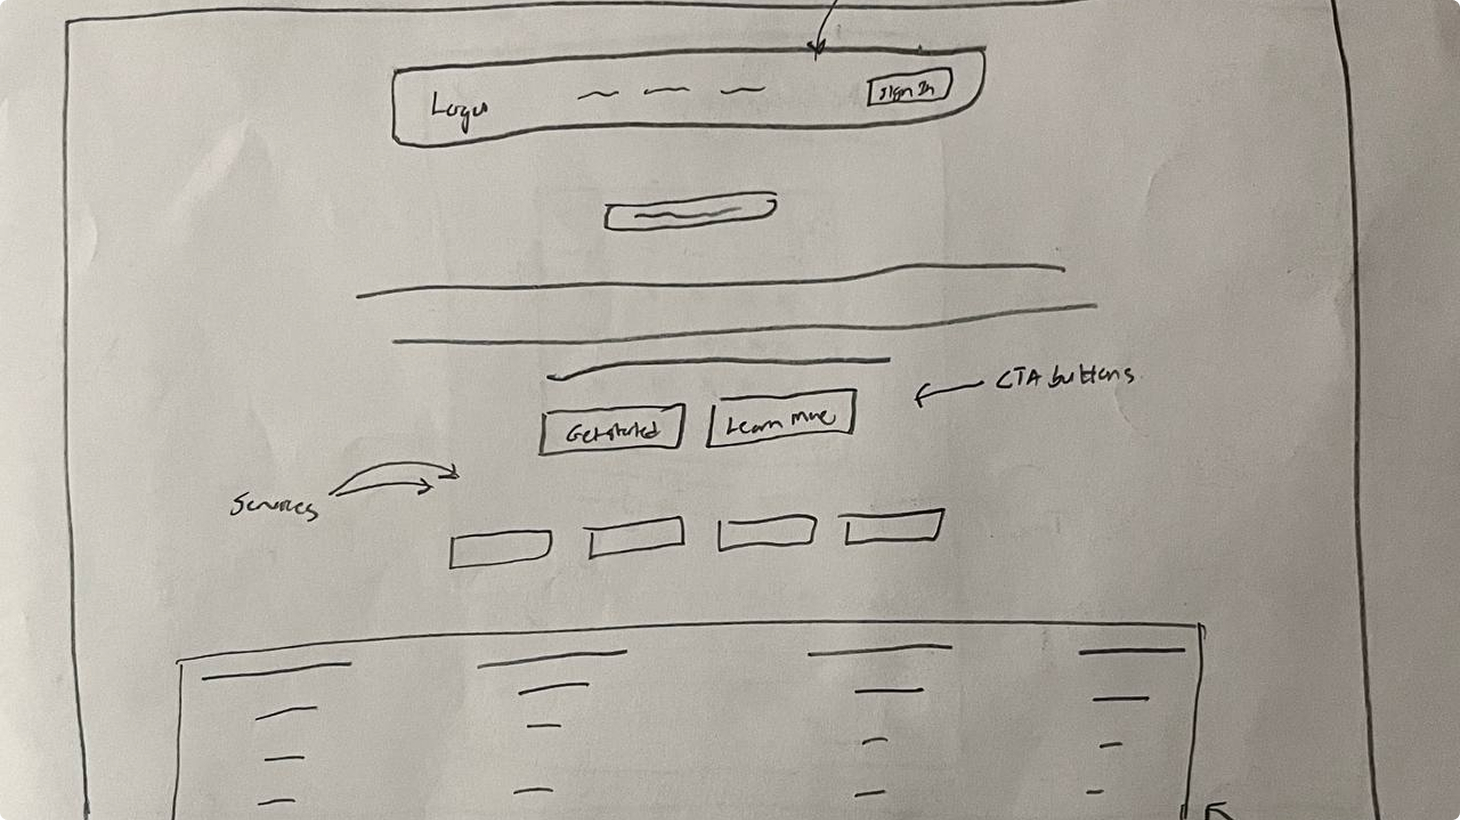 Logo
Sign In
CTA buttons
Get started
Learn More
Services